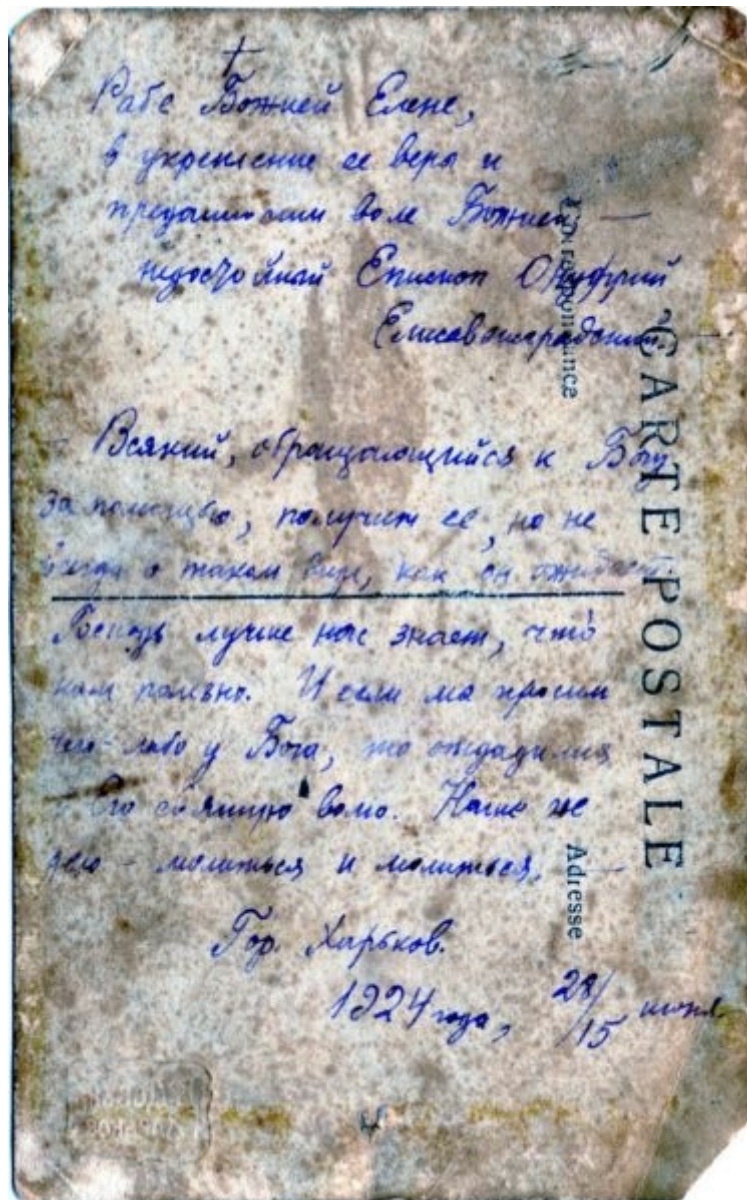 Рабе Божией Елене,
в укрепление ее веры и
преданности воле Божией —
недостойный Епископ Онуфрий
Елисаветградский.
Всякий, обращающийся к Богу
за помощью, получит ее, но не
всегда в таком виде, как он ожидает.
Господь лучше нас знает, что́
нам полезно. И если мы просим
чего-либо у Бога, то
Его святую волю. Наше же
дело – молиться и молиться.
Гор. Харьков.
1924 года, 28/15 июня.
CARTE POSTALE
Correspondance
Adresse